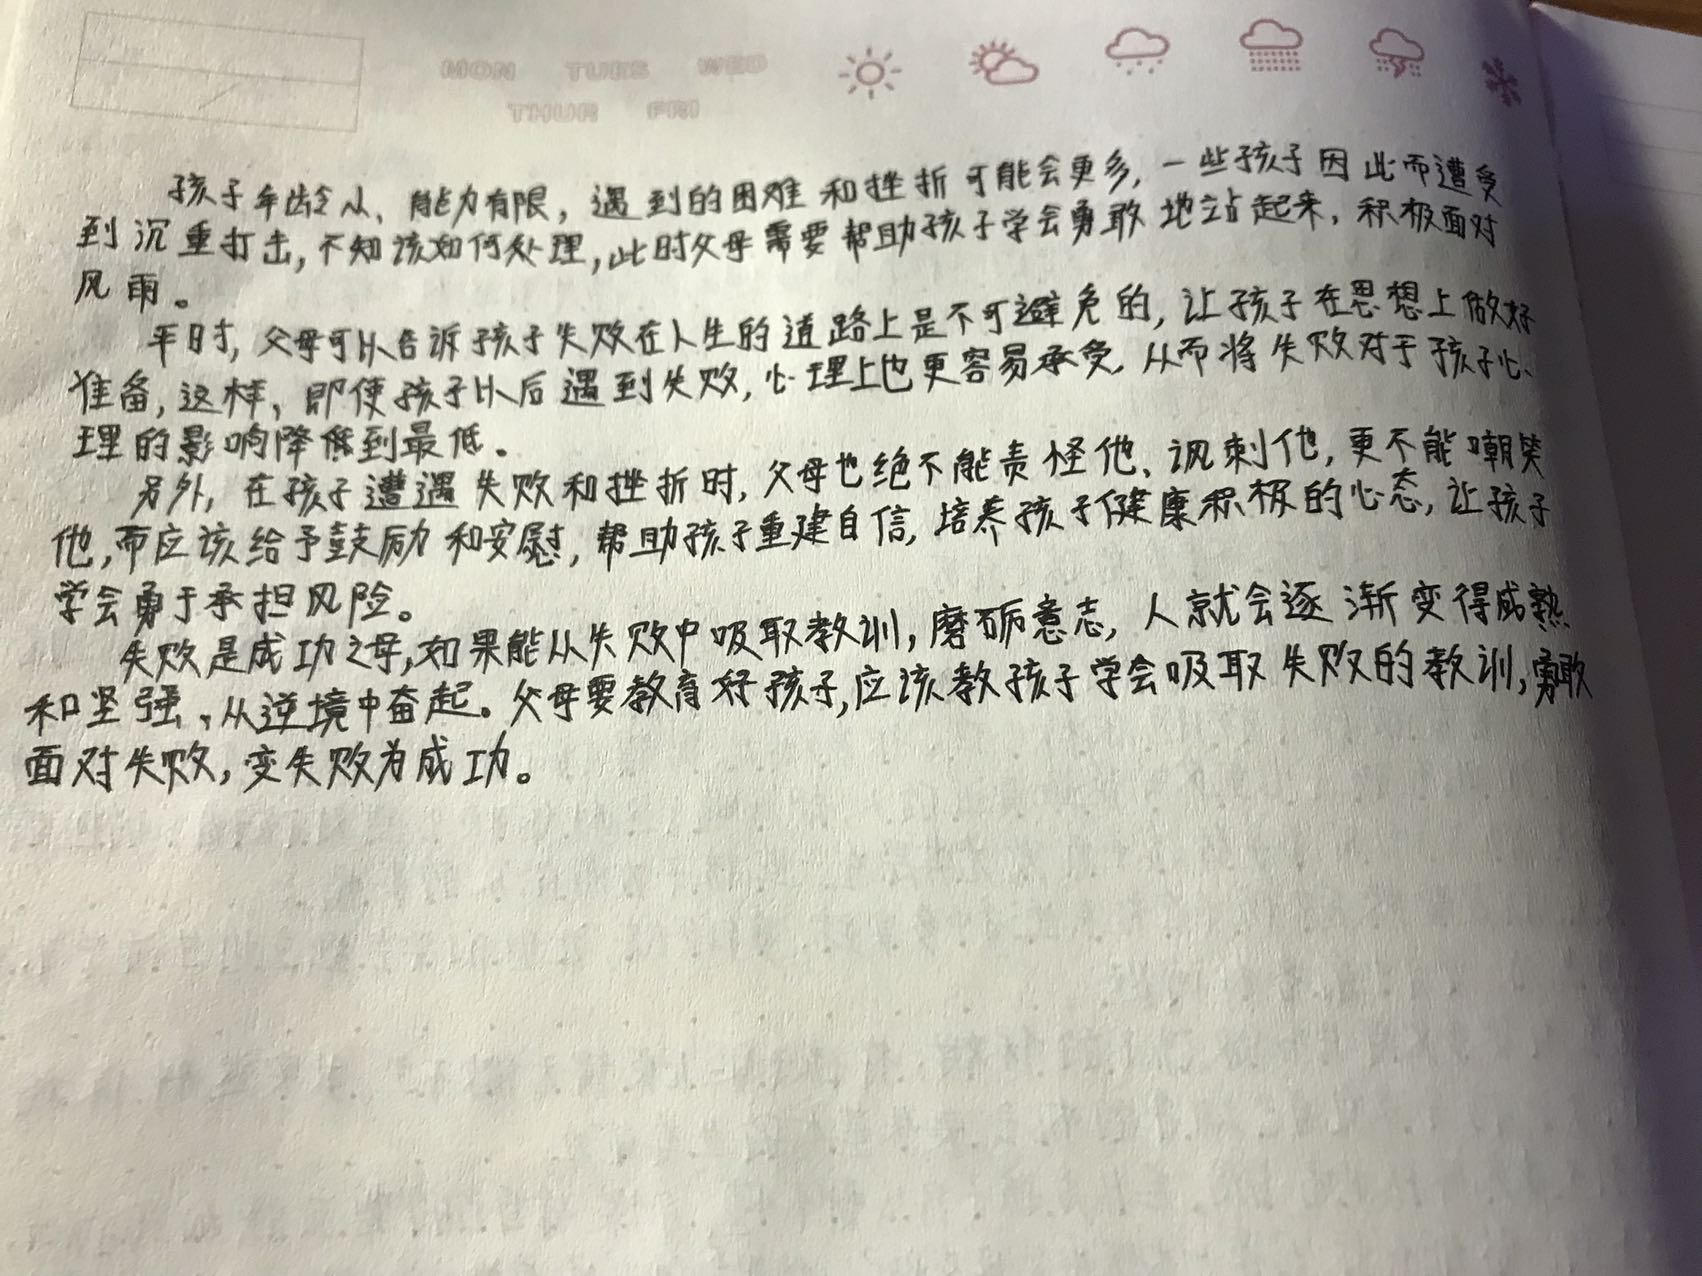 MON TUES WED
THUR FRI
孩子年龄小、能力有限，遇到的困难和挫折可能会更多，一些孩子因此而遭受
到沉重打击，不知该如何处理，此时父母需要帮助孩子学会勇敢地站起来，积极面对
风雨。
平时，父母可以告诉孩子失败在人生的道路上是不可避免的，让孩子在思想上做好
准备，这样，即使孩子以后遇到失败，心理上也更容易承受，从而将失败对于孩子心
理的影响降低到最低。
另外，在孩子遭遇失败和挫折时，父母也绝不能责怪他、讽刺他，更不能嘲笑
他，而应该给予鼓励和安慰，帮助孩子重建自信，培养孩子健康积极的心态，让孩子
学会勇于承担风险。
失败是成功之母，如果能从失败中吸取教训，磨砺意志，人就会逐渐变得成熟
和坚强、从逆境中奋起。父母要教育好孩子，应该教孩子学会吸取失败的教训，勇敢
面对失败，变失败为成功。